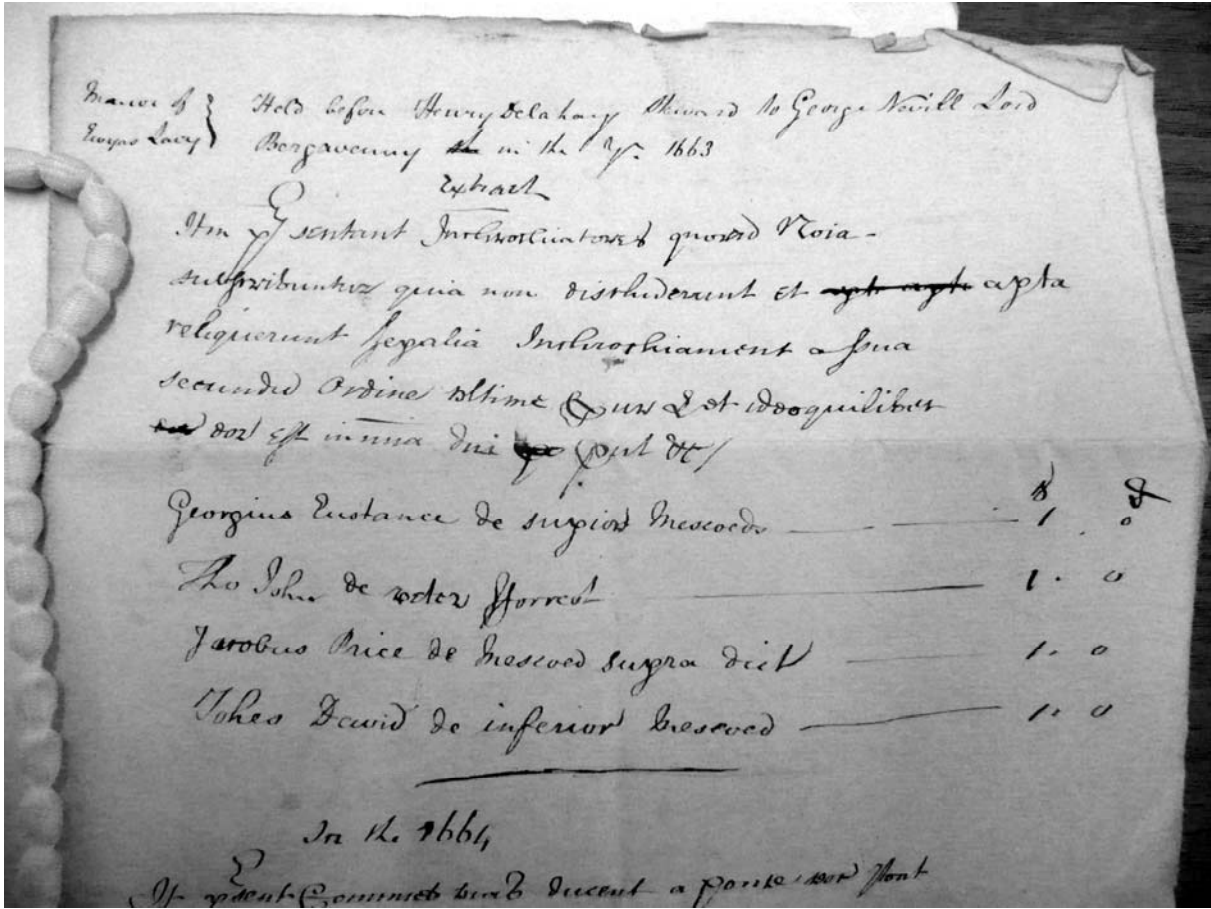 Manor of } Held before Henry Delahay Steward to George Nevill Lord
Ewyas Lacy } Bergavenny in the yr. 1663
Extract
Itm Psentant Inchrochiatores quord Noia -
subscribuntur quia non discluderunt et apta
reliquerunt sepalia Inchrochiament a sua
secundu Ordine ultime Cur & et ideo quilibet
eor est in mia dni put &c/
s d
Georgius Eustance de supior Mescoed 1 0
Tho John de Forrest 1. 0
Jacobus Price de Mescoed supra dict 1. 0
Johes David de inferior Mescoed 1. 0
In the 1664
It psent Commes ducent a ponte Pont